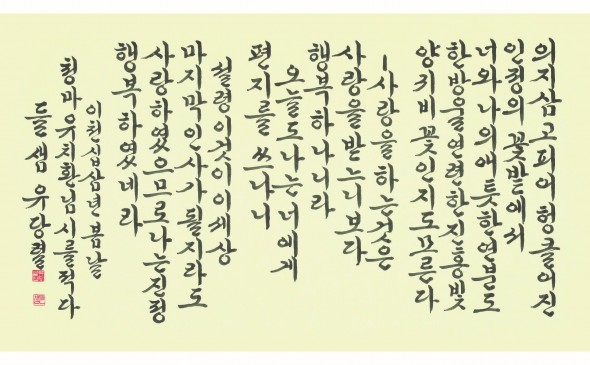 의지삼고피어 헝클어진
인정의 꽃밭에서
너와 나의 애틋한 연분도
한방울 연련한 진홍빛
양귀비 꽃인지도 모른다
-사랑을 하는것은
사랑을 받느니보다
행복하나니라
오늘도 나는 너에게
편지를 쓰나니
설령 이것이 이 세상
마지막 인사가 될지라도
사랑하였으므로 나는 진정
행복하였네라
이천십삼년 봄날
청마 유치환님 시를 적다
들샘 유당렬